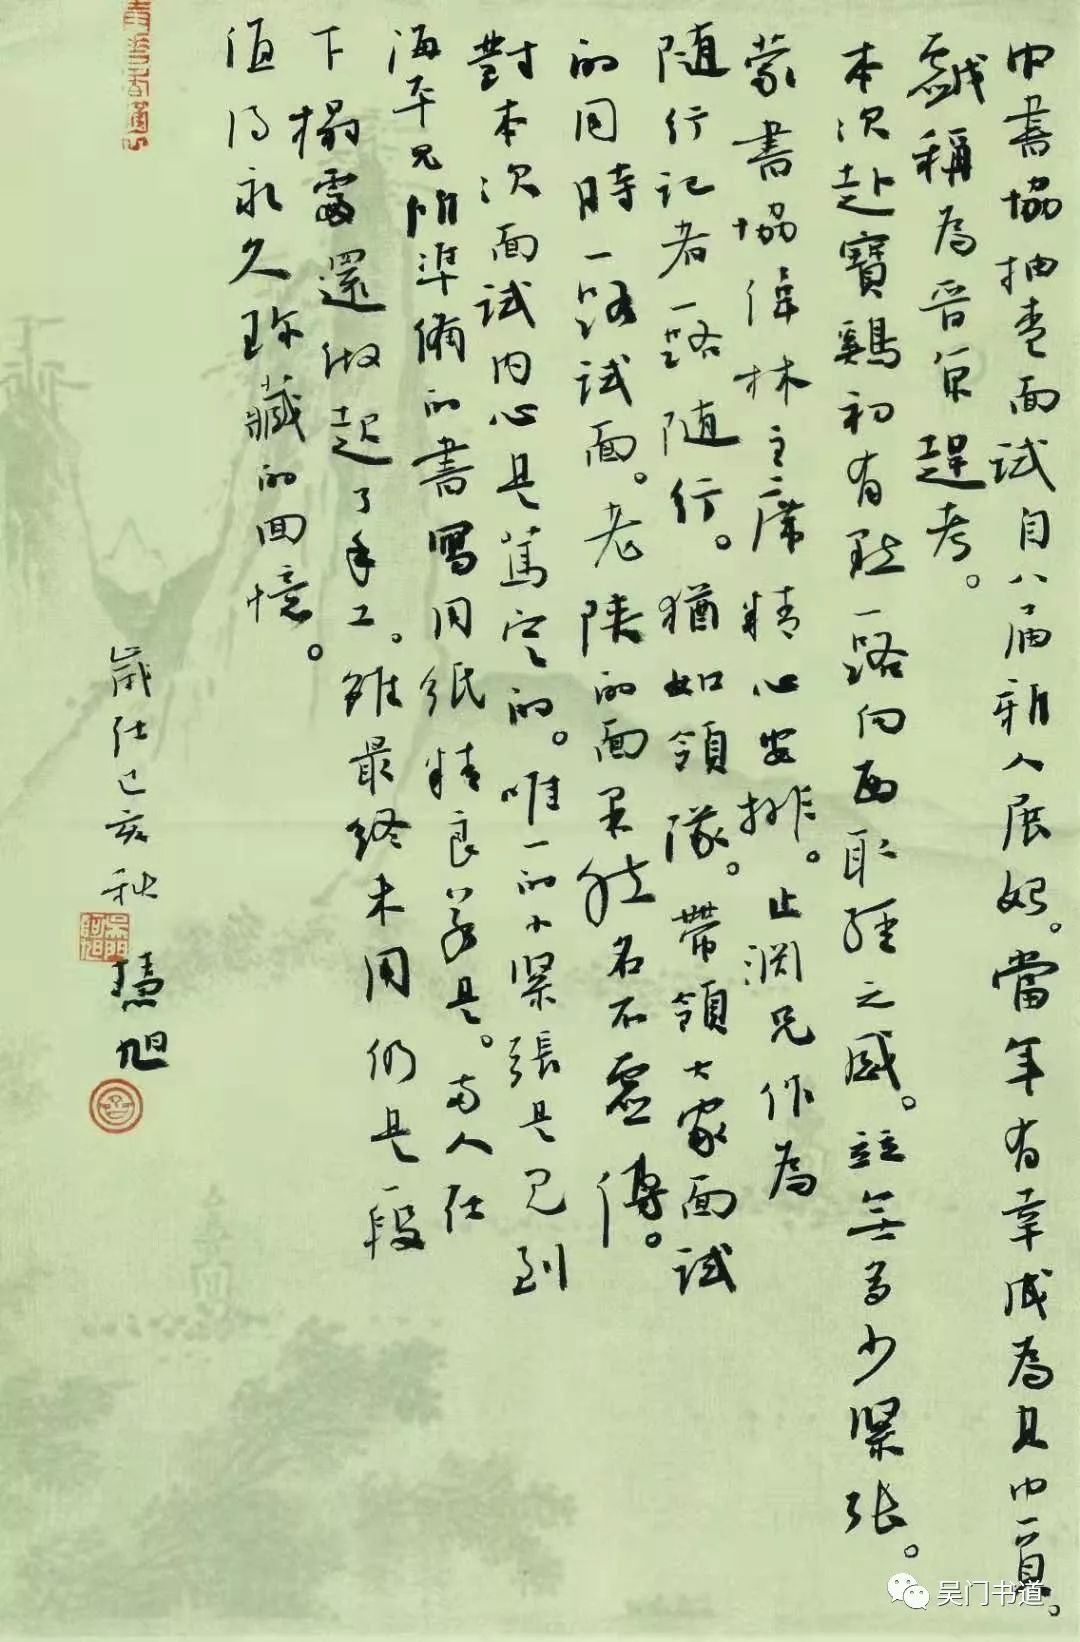 中書協抽查面試自八届新人展始。當年有幸成為其中一員。
戲稱為晋京趕考。
本次赴寶鷄初有點一路向西取經之感。並無多少緊張。
蒙書協偉林主席精心安排。止渊兄作為
随行记者一路随行。猶如領隊。帶領大家面試
的同時一路试面。老陕的面果然名不虚傳。
對本次面試内心是篤定的。唯一的小緊張是見到
海平兄所準備的書寫用纸精良若是。两人在
下榻處還做起了手工。雖最終未用仍是一段
值得永久珍藏的回憶。
歲在己亥秋
旭
吴门书道